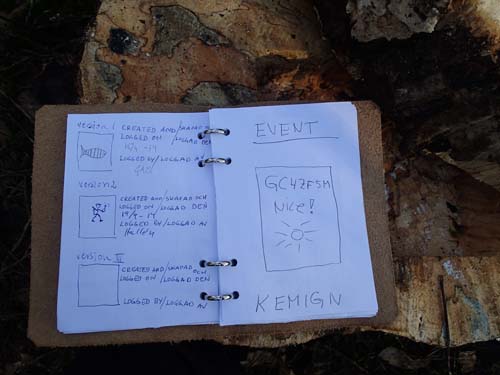 version 1
CREATED AND/SKAPAD
LOGGED ON / LOGGAD DEN
LOGGED BY/LOGGAD AV
version 2
CREATED AND/SKAPAD OCH
LOGGED ON / LOGGAD DEN
19/4 -14
LOGGED BY / LOGGAD AV
version III
CREATED AND/SKAPAD OCH
LOGGED ON / LOGGAD DEN
LOGGED BY/LOGGAD AV
EVENT
GC4ZF5M
Nice!
KEMIGN